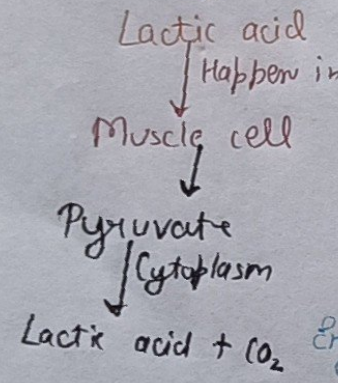 Lactic acid
Happen in
Muscle cell
Pyruvate
Cytoplasm
Lactic acid + CO₂